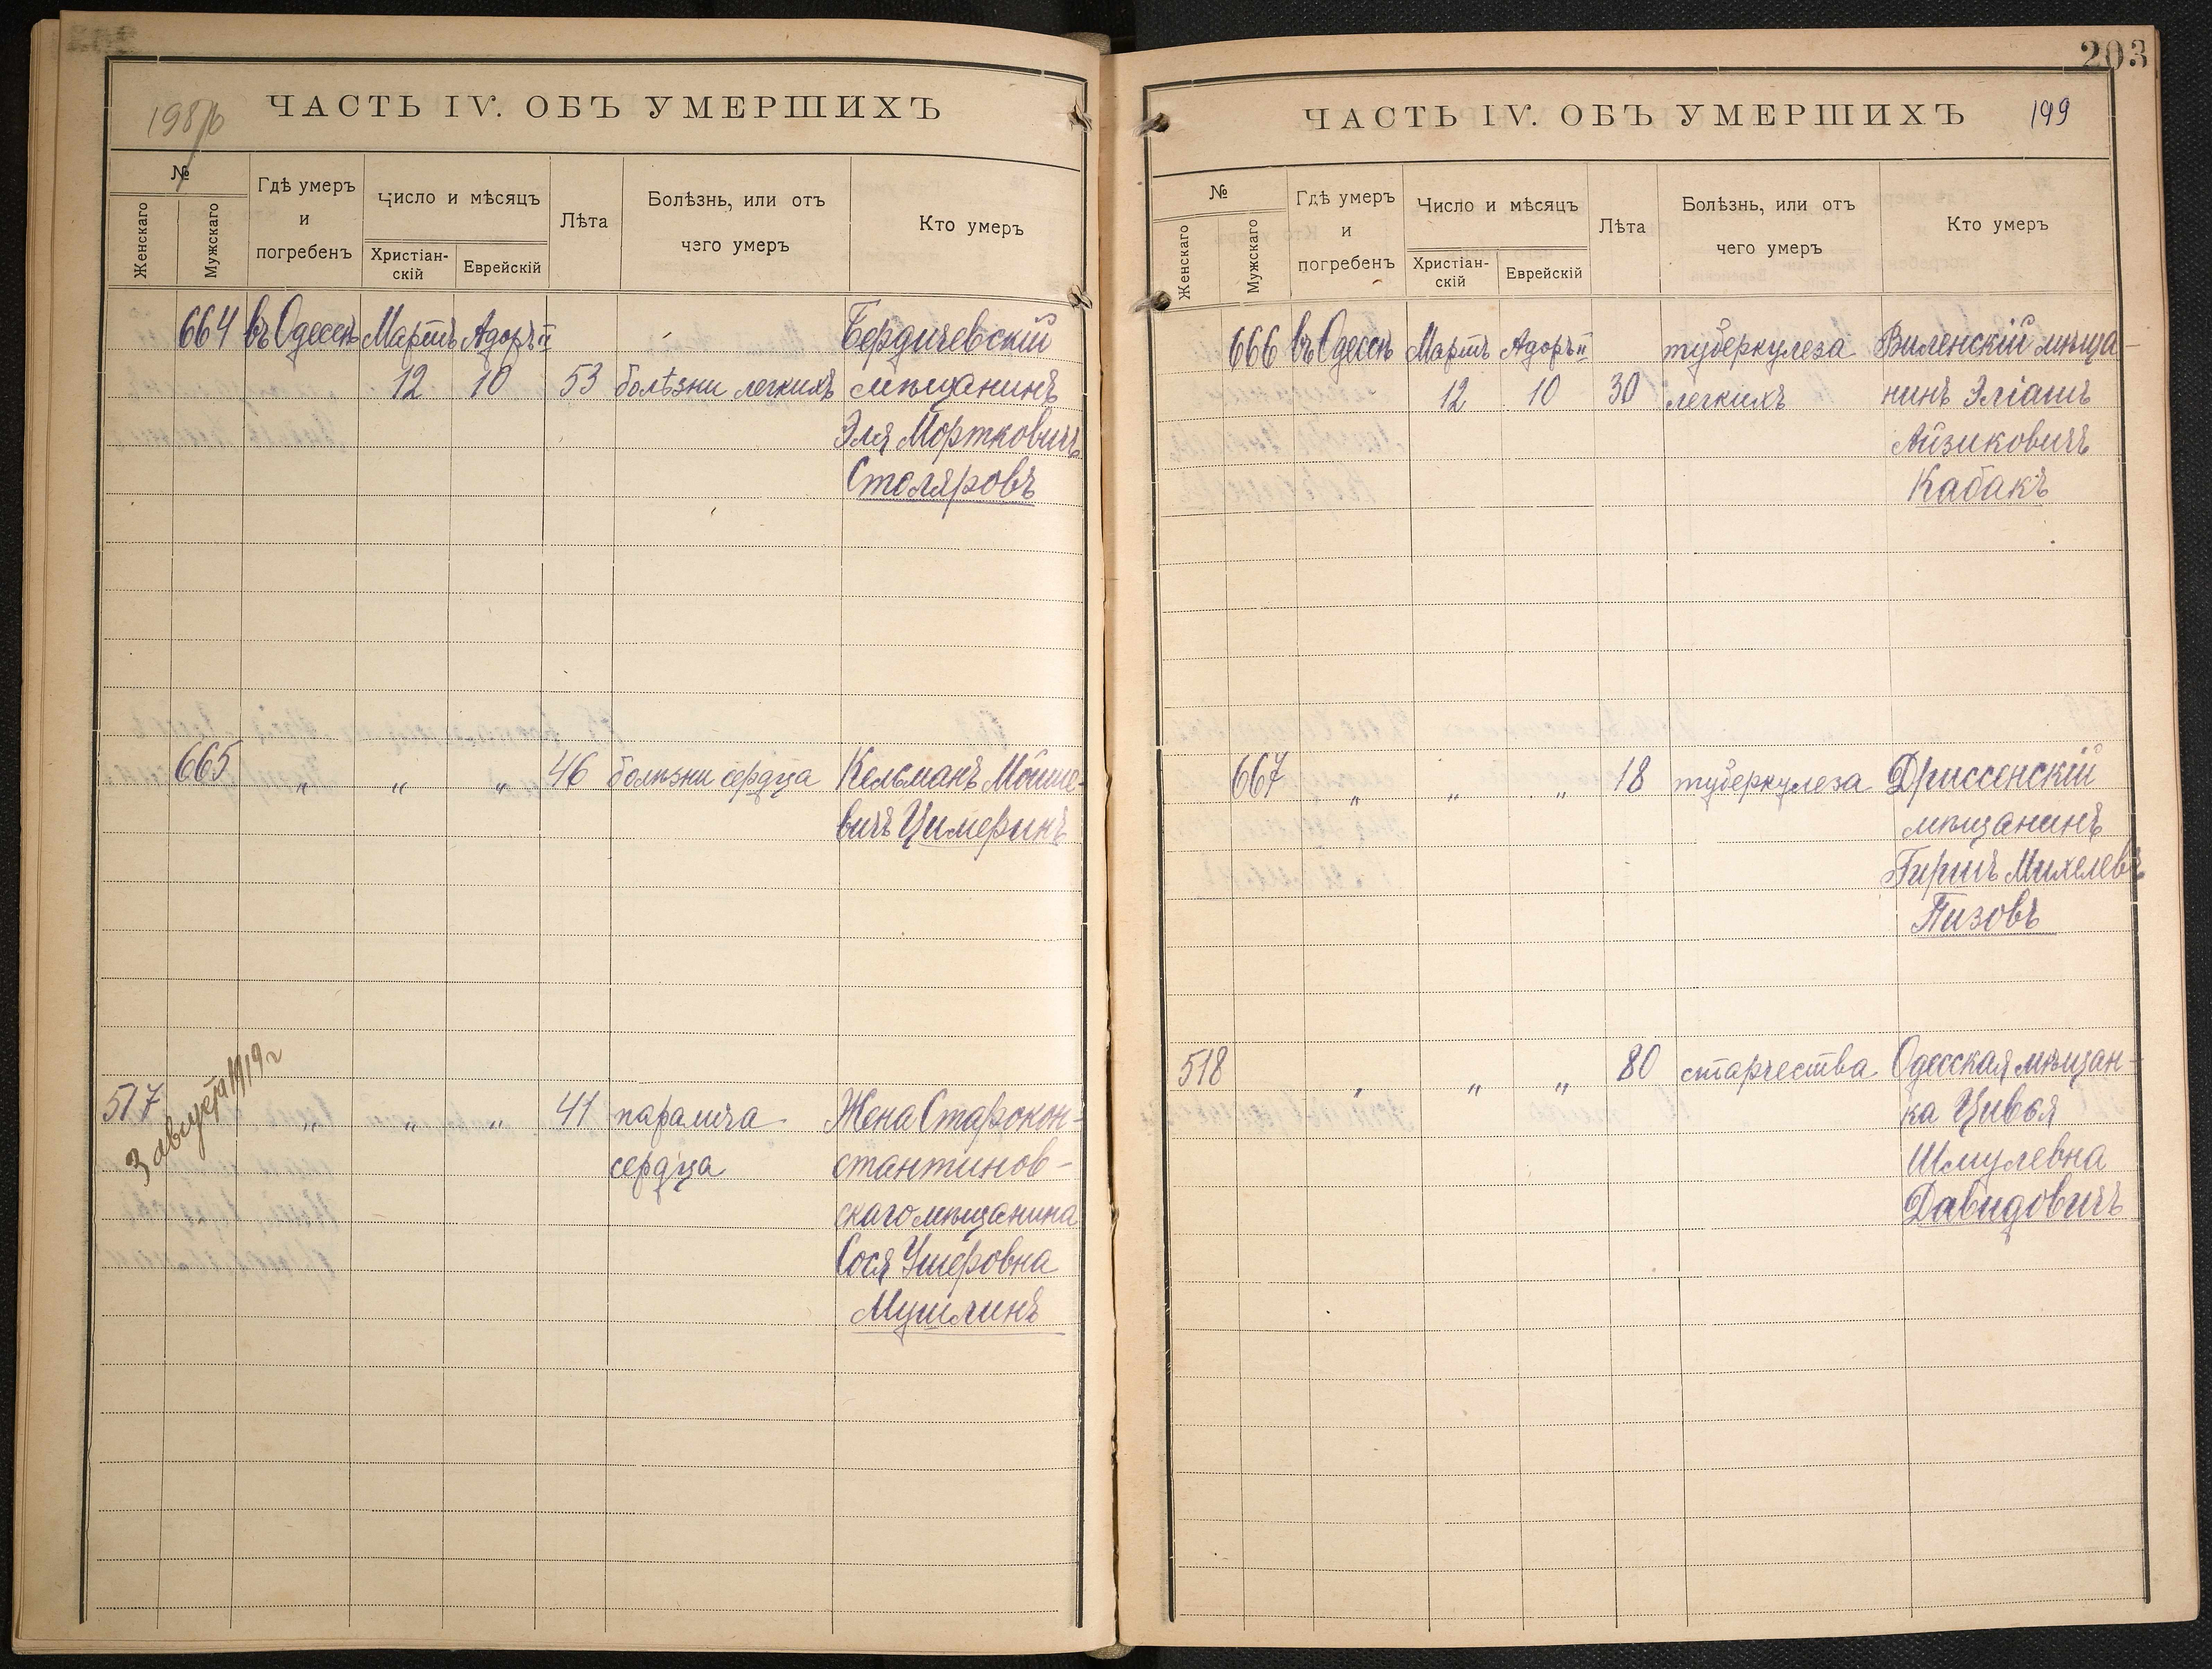 198/b
ЧАСТЬ IV. ОБЪ УМЕРШИХЪ
№
Женскаго
Мужскаго
Гдѣ умеръ
и
погребенъ
Число и мѣсяцъ
Христіан-
скій
Еврейскій
Лѣта
Болѣзнь, или отъ
чего умеръ
Кто умеръ
664 въ Одессѣ Мартъ Адоръ II Бердичевскій
12 10 53 болѣзни легкихъ мѣщанинъ
Эля Мортковичъ
Столяровъ
665 " " " 46 болѣзни сердца Кельманъ Мойше-
вичъ Цимеринъ
3 августа 1919 г
517 " " " 41 паралича Жена Старокон-
сердца стантинов-
скаго мѣщанина
Сося Ушеровна
Мушлинъ
203
ЧАСТЬ IV. ОБЪ УМЕРШИХЪ 199
№
Женскаго
Мужскаго
Гдѣ умеръ
и
погребенъ
Число и мѣсяцъ
Христіан-
скій
Еврейскій
Лѣта
Болѣзнь, или отъ
чего умеръ
Кто умеръ
666 въ Одессѣ Мартъ Адоръ II туберкулеза Виленскій мѣща-
12 10 30 легкихъ нинъ Эліашъ
Айзиковичъ
Кабакъ
667 " " " 18 туберкулеза Дриссенскій
мѣщанинъ
Гиршъ Михелевъ
Пизовъ
518 " " " 80 старчества Одесская мѣщан-
ка Цивья
Шмулевна
Давидовичъ